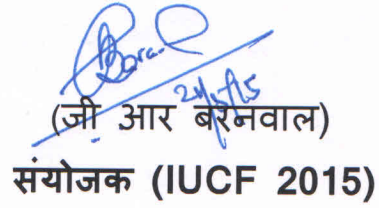 24/5/15
(जी आर बरनवाल)
संयोजक (IUCF 2015)